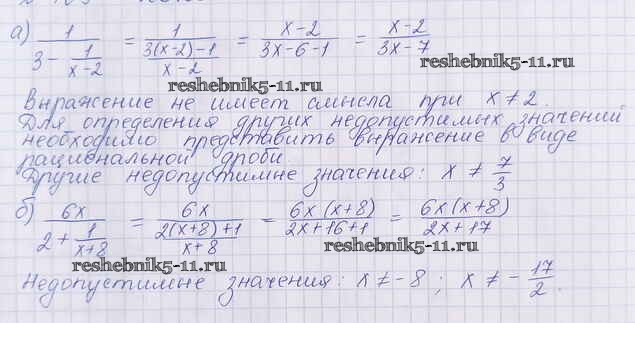 а) 1/(3 - 1/(x-2)) = 1/((3(x-2)-1)/(x-2)) = (x-2)/(3x-6-1) = (x-2)/(3x-7)
reshebnik5-11.ru
reshebnik5-11.ru
Выражение не имеет смысла при x ≠ 2.
Для определения других недопустимых значений
необходимо представить выражение в виде
рациональной дроби.
Другие недопустимые значения: x ≠ 7/3
б) 6x/(2 + 1/(x+8)) = 6x/((2(x+8)+1)/(x+8)) = 6x(x+8)/(2x+16+1) = 6x(x+8)/(2x+17)
reshebnik5-11.ru
reshebnik5-11.ru
Недопустимые значения: x ≠ -8; x ≠ -17/2.